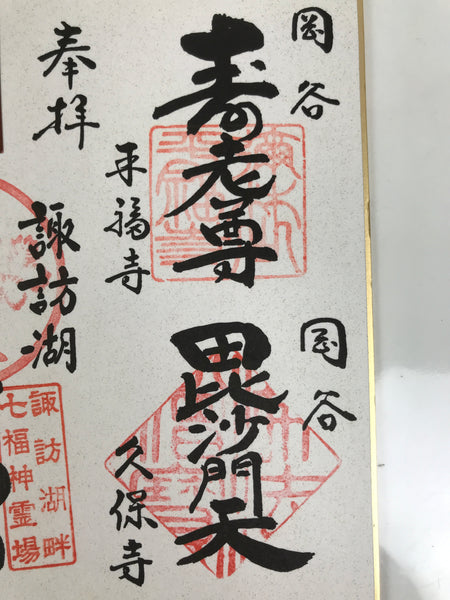 岡谷
寿老尊
平福寺
岡谷
毘沙門天
久保寺
奉拝
諏訪湖
諏訪湖畔
七福神霊場